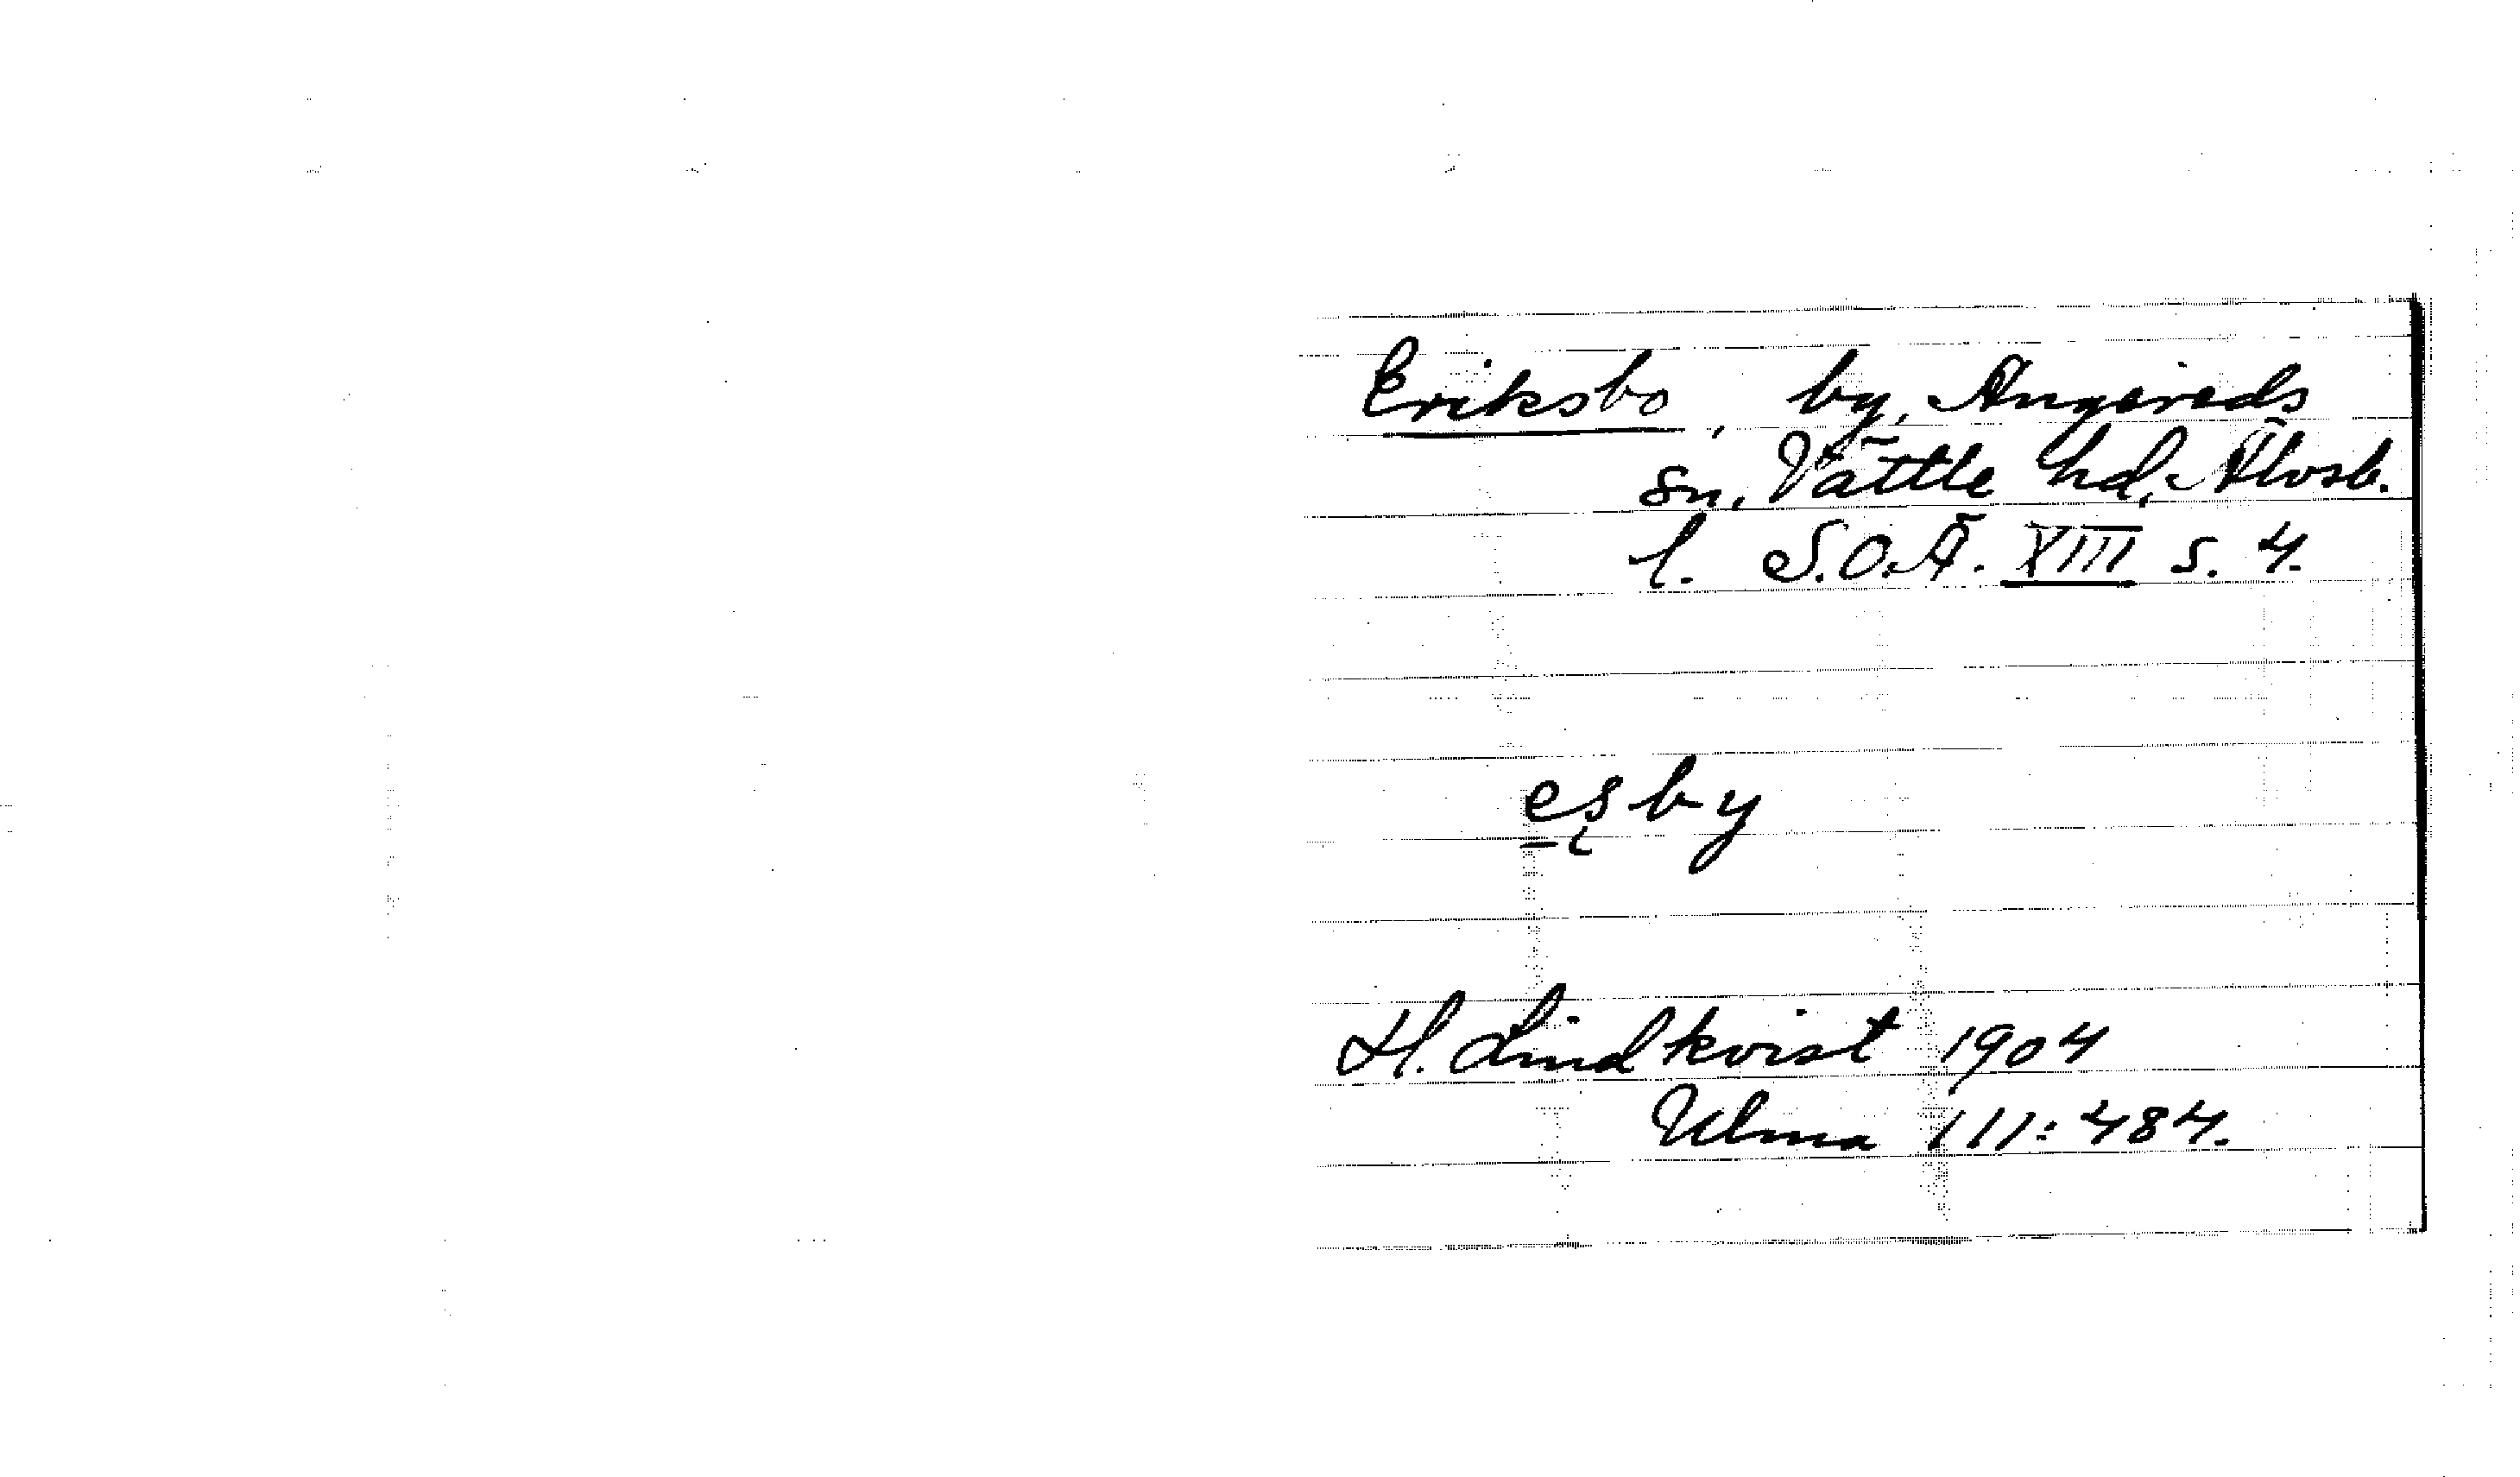 Eriksbo, by, Angereds
sn, Vättle hd, Älvsb.
l. S.O.Ä. XIII s. 4.
esby
H. Lindkvist 1904
Ulma 111:484.